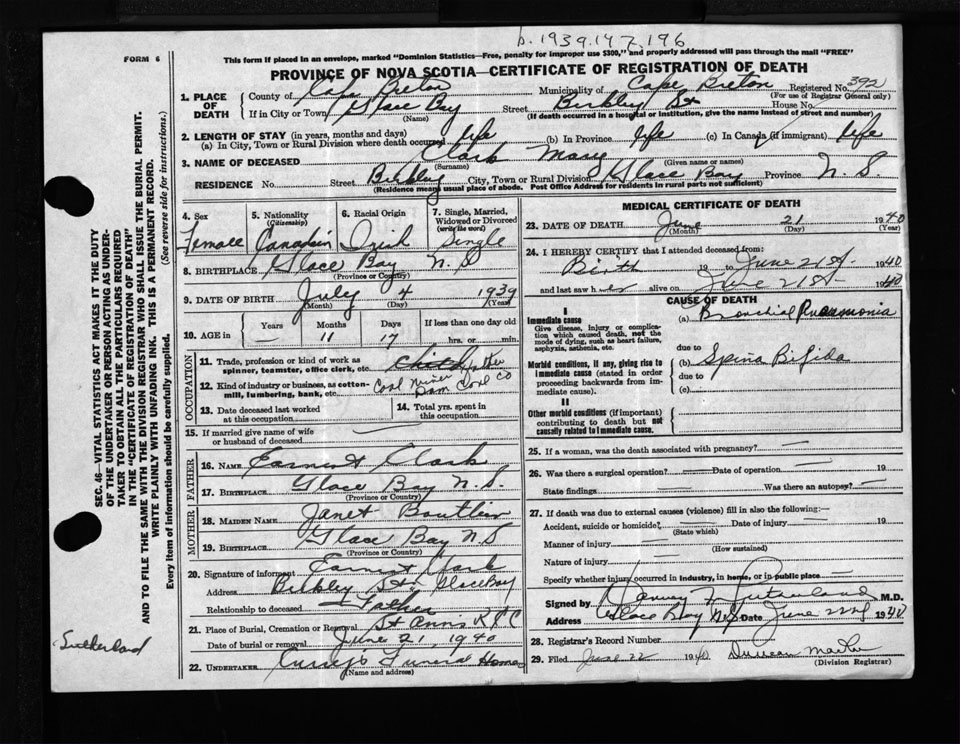 b. 1939.147.196
FORM 6
This form if placed in an envelope, marked "Dominion Statistics—Free, penalty for improper use $300," and properly addressed will pass through the mail "FREE"
PROVINCE OF NOVA SCOTIA—CERTIFICATE OF REGISTRATION OF DEATH
1. PLACE OF DEATH
County of Cape Breton Municipality of Cape Breton Registered No. 392
(For use of Registrar General only)
If in City or Town Glace Bay Street Birkley St House No.
(Name) (If death occurred in a hospital or institution, give the name instead of street and number)
2. LENGTH OF STAY (in years, months and days)
(a) In City, Town or Rural Division where death occurred life (b) In Province life (c) In Canada (if immigrant) life
3. NAME OF DECEASED Clark Mary
(Surname) (Given name or names)
RESIDENCE No. Street Birkley City, Town or Rural Division Glace Bay Province N. S.
(Residence means usual place of abode. Post Office Address for residents in rural parts not sufficient)
4. Sex
Female
5. Nationality (Citizenship)
Canadian
6. Racial Origin
Irish
7. Single, Married, Widowed or Divorced (write the word)
Single
8. BIRTHPLACE Glace Bay N. S
(Province or Country)
9. DATE OF BIRTH July 4 1939
(Month) (Day) (Year)
10. AGE in
Years — Months 11 Days 17
If less than one day old
hrs. or min.
OCCUPATION
11. Trade, profession or kind of work as spinner, teamster, office clerk, etc. Child
12. Kind of industry or business, as cotton-mill, lumbering, bank, etc. Coal Miner Dom Coal Co
13. Date deceased last worked at this occupation
14. Total yrs. spent in this occupation
15. If married give name of wife or husband of deceased —
FATHER
16. NAME Earnest Clark
17. BIRTHPLACE Glace Bay N. S.
(Province or Country)
MOTHER
18. MAIDEN NAME Janet Boutlier
19. BIRTHPLACE Glace Bay N S
(Province or Country)
20. Signature of informant Earnest Clark
Address Birkley St Glace Bay
Relationship to deceased Father
21. Place of Burial, Cremation or Removal St Anns R.C
Date of burial or removal June 21 1940
22. UNDERTAKER Curry's Funeral Home
(Name and address)
MEDICAL CERTIFICATE OF DEATH
23. DATE OF DEATH June 21 1940
(Month) (Day) (Year)
24. I HEREBY CERTIFY that I attended deceased from:
Birth 19 to June 21st 1940
and last saw her alive on June 21st 1940
CAUSE OF DEATH
I
Immediate cause
Give disease, injury or complication which caused death, not the mode of dying, such as heart failure, asphyxia, asthenia, etc.
(a) Bronchial Pneumonia
due to
Morbid conditions, if any, giving rise to immediate cause (stated in order proceeding backwards from immediate cause).
(b) Spina Bifida
due to
(c)
II
Other morbid conditions (if important) contributing to death but not causally related to immediate cause.
25. If a woman, was the death associated with pregnancy? —
26. Was there a surgical operation? — Date of operation — 19
State findings Was there an autopsy? —
27. If death was due to external causes (violence) fill in also the following:—
Accident, suicide or homicide? — Date of injury — 19
(State which)
Manner of injury —
(How sustained)
Nature of injury —
Specify whether injury occurred in industry, in home, or in public place —
Signed by Harvey F. Sutherland M.D.
Address Glace Bay N.S Date June 22nd 1940
28. Registrar's Record Number
29. Filed June 22 1940 Duncan
(Division Registrar)
SEC. 46—VITAL STATISTICS ACT MAKES IT THE DUTY
OF THE UNDERTAKER OR PERSON ACTING AS UNDER-
TAKER TO OBTAIN ALL THE PARTICULARS REQUIRED
IN THE "CERTIFICATE OF REGISTRATION OF DEATH"
AND TO FILE THE SAME WITH THE DIVISION REGISTRAR WHO SHALL ISSUE THE BURIAL PERMIT.
WRITE PLAINLY WITH UNFADING INK. THIS IS A PERMANENT RECORD.
Every item of information should be carefully supplied. (See reverse side for instructions.)
Sutherland